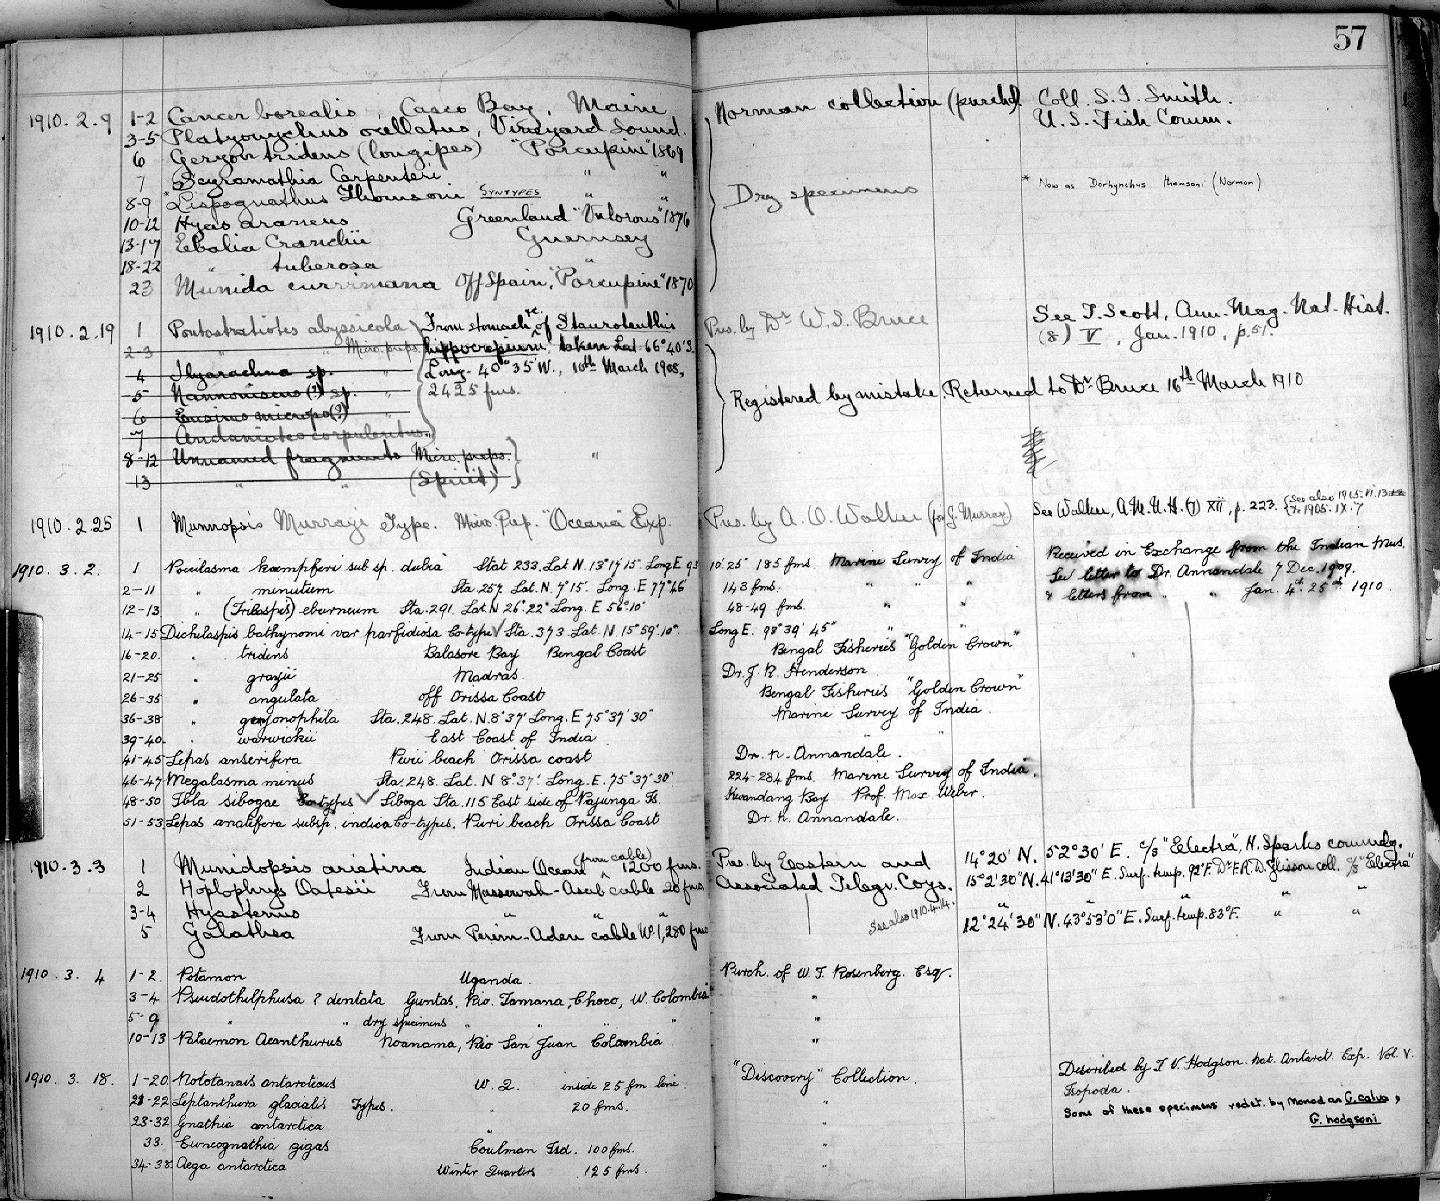 57
1910.2.9 1-2 Cancer borealis, Casco Bay, Maine Norman collection (purchd). Coll. S. I. Smith.
3-5 Platyonychus ocellatus, Vineyard Sound. U. S. Fish Comm.
6 Geryon tridens (longipes) "Porcupine" 1869
7 Scyramathia Carpenteri " "
8-9 *Lispognathus Thomsoni SYNTYPES " " Dry specimens * Now as Dorhynchus thomsoni (Norman)
10-12 Hyas araneus Greenland "Valorous" 1876
13-17 Ebalia Cranchii Guernsey
18-22 " tuberosa "
23 Munida curvimana Off Spain, "Porcupine" 1870
1910.2.19 1 Pontostratiotes abyssicola From stomach etc. of Stauroteuthis Pres. by Dr W. S. Bruce See T. Scott, Ann. Mag. Nat. Hist.
2-3 " " Micro. preps. hippocrepium, taken Lat. 66°40'S. (8) V, Jan. 1910, p. 51.
4 Ilyarachna sp. " Long. 40°35'W., 10th March 1903,
5 Nannoniscus (?) sp. " 2425 fms. Registered by mistake. Returned to Dr Bruce 16th March 1910
6 Eusirus micropo(?) "
7 Andaniotes corpulentus "
8-12 Unnamed fragments Micro. preps. "
13 " " (Spirit)
1910.2.25 1 Munnopsis Murrayi Type. Micro Prep. "Oceana" Exp. Pres. by A. O. Walker (for J. Murray) See Walker, A.M.N.H. (7) XII, p. 223. {See also 1905.VI.13
& 1905.IX.7
1910.3.2. 1 Poecilasma kaempferi sub sp. dubia Stat 233. Lat N. 13°17'15" Long E 93°10'25" 185 fms. Marine Survey of India Received in Exchange from the Indian Mus.
2-11 " minutum Sta. 257 Lat. N. 7°15'. Long. E 77°46' 143 fms. " " " See letter to Dr. Annandale 7 Dec. 1909.
12-13 " (Trilaspis) eburneum Sta. 291. Lat. N 26°22" Long. E 56°10' 48-49 fms. " " & letters from " " Jan. 4th 25th 1910.
14-15 Dichelaspis bathynomi var parfidiosa Co-type ✓ Sta. 373 Lat. N. 15°59'.10". Long E. 93°39' 45" "
16-20. " tridens Balasore Bay Bengal Coast Bengal Fisheries "Golden Crown"
21-25 " grayii Madras. Dr. J. R. Henderson.
26-35 " angulata off Orissa Coast Bengal Fisheries "Golden Crown"
36-38 " geryonophila Sta. 248. Lat. N. 8°37' Long. E 75°37'30" Marine Survey of India.
39-40. " warwickii East Coast of India "
41-45 Lepas anserifera Puri beach Orissa coast Dr. N. Annandale.
46-47 Megalasma minus Sta. 248. Lat. N 8°37'. Long. E. 75°37'30" 224-284 fms. Marine Survey of India.
48-50 Ibla sibogae Co-types ✓ Siboga Sta. 115 East side of Pajunga Is. Kwandang Bay Prof. Max Weber.
51-53 Lepas anatifera subsp. indica Co-types. Puri beach Orissa Coast Dr. N. Annandale.
1910.3.3 1 Munidopsis arietina Indian Ocean (from cable) 1200 fms. Pres. by Eastern and 14°20' N. 52°30' E. c/s "Electra", H. Sparks commdg.
2 Hoplophrys Oatesii From Massowah-Asab cable 20 fms Associated Telegr. Coys. 15°2'30" N. 41°13'30" E. Surf. temp. 92°F. Dr. F. R. D. Jeisson coll. c/s "Electra"
3-4 Hyastenus " " " See also 1910.4.14. " " "
5 Galathea From Perim-Aden cable W. 1,280 fms 12°24'30" N. 43°53'0" E. Surf. temp. 83°F. " "
1910.3.4 1-2. Potamon Uganda. Purch. of W. F. Rosenberg. Esq.
3-4 Pseudothelphusa ? dentata Guntas, Rio. Tamana, Choco, W. Colombia "
5-9 " " dry specimens " " " " "
10-13 Palaemon Acanthurus Noanama, Rio San Juan Colombia "
1910.3.18. 1-20 Nototanais antarcticus W. Q. inside 25 fm line. "Discovery" Collection. Described by T. V. Hodgson. Nat. Antarct. Exp. Vol. V.
21-22 Leptanthura glacialis Types. " 20 fms. " Isopoda.
23-32 Gnathia antarctica " " Some of these specimens redet. by Monod as G. calva,
33. Euneognathia gigas Coulman Isd. 100 fms. " G. hodgsoni
34-38. Aega antarctica Winter Quarters 125 fms. "